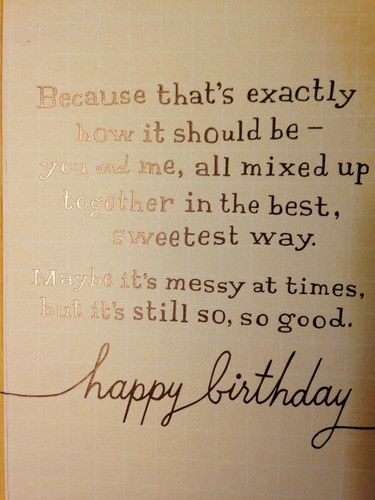 Because that's exactly
how it should be –
you and me, all mixed up
together in the best,
sweetest way.
Maybe it's messy at times,
but it's still so, so good.
happy birthday